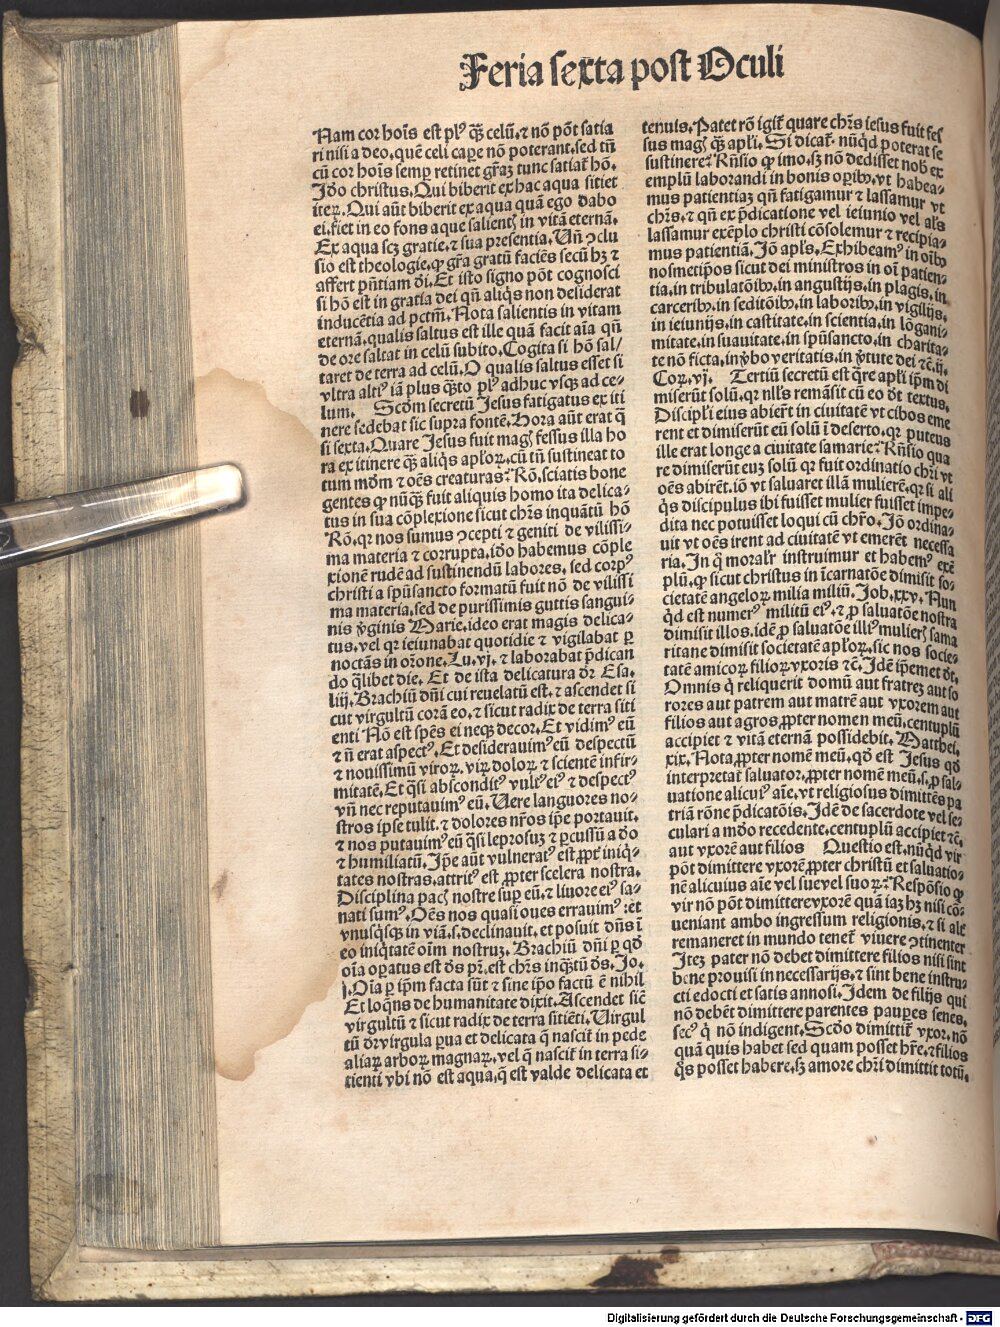 Feria sexta post Oculi
Nam cor hoīs est plꝰ q̄ꝫ celū.⁊ nō pōt satia
ri nisi a deo.quē celi capere nō poterant.sed tn̄
cū cor hoīs semꝑ retinet gr̄aꝫ tunc satiat̄ hō.
Jdo christus.Qui biberit ex hac aqua sitiet
iteꝝ.Qui aūt biberit ex aqua quā ego dabo
ei.fiet in eo fons aque salientꝭ in vitā eternā.
Ex aqua scꝫ gratie.⁊ sua presentia.Vn̄ ↄclu
sio est theologie.ꝙ gr̄a gratū faciēs secū hꝫ ⁊
affert pn̄tiam d̄i.Et isto signo pōt cognosci
si hō est in gratia dei qn̄ aliq̄s non desiderat
inducētia ad pctm̄.Nota salientis in vitam
eternā.qualis saltus est ille quā facit aīa qn̄
de ore saltat in celū subito.Cogita si hō sal/
taret de terra ad celū.O qualis saltus esset si
vltra altꝰ iā plus q̄ꝫto plꝰ adhuc vsqꝫ ad ce⸗
lum. Scd̄m secretū Jesus fatigatus ex iti
nere sedebat sic supra fontē.Hora aūt erat q̄
si sexta.Quare Jesus fuit magꝭ fessus illa ho
ra ex itinere q̄ꝫ aliq̄s apl̄oꝝ.cū tn̄ sustineat to
tum mōm ⁊ oēs creaturas? Rō.sciatis bone
gentes ꝙ nūq̄ꝫ fuit aliquis homo ita delica⸗
tus in sua cōplexione sicut chr̄s inquātū hō
Rō.qꝛ nos sumus ↄcepti ⁊ geniti de vilissi⸗
ma materia ⁊ corrupta.ido habemus cōple
xionē rudē ad sustinendū labores. sed corpꝰ
christi a spūsancto formatū fuit nō de vilissi
ma materia.sed de purissimis guttis sangui⸗
nis v̄ginis Marie.ideo erat magis delica⸗
tus.vel qꝛ ieiunabat quotidie ⁊ vigilabat ꝑ
noctās in or̄one.Lu.vj. ⁊ laborabat p̄dican
do q̄libet die. Et de ista delicatura dr̄ Esa.
liij.Brachiū dn̄i cui reuelatū est.⁊ ascendet si
cut virgultū corā eo.⁊ sicut radix de terra siti
enti Nō est spēs ei neqꝫ decor.Et vidimꝰ eū
⁊ n̄ erat aspectꝰ.Et desiderauimꝰ eū despectū
⁊ nouissimū viroꝝ.viꝝ doloꝝ ⁊ scientē infir⸗
mitatē.Et q̄si absconditꝰ vultꝰ eiꝰ ⁊ despectꝰ
vn̄ nec reputauimꝰ eū.Uere languores no⸗
stros ipse tulit.⁊ dolores nr̄os ip̄e portauit.
⁊ nos putauimꝰ eū q̄si leprosuꝫ ⁊ ꝑcussū a d̄o
⁊ humiliatū.Ip̄e aūt vulneratꝰ est ꝓpt̄ iniq̄⸗
tates nostras.attritꝰ est ꝓpter scelera nostra.
Disciplina pacꝭ nostre suꝑ eū.⁊ liuore eiꝰ sa⸗
nati sumꝰ.Oēs nos quasi oues errauimꝰ:et
vnusq̄sqꝫ in viā.s.declinauit.et posuit dn̄s ī
eo iniq̄tatē oīm nostruꝫ. Brachiū dn̄i ꝑ qd̄
oīa oꝑatus est d̄s pr̄.est chr̄s inq̄ꝫtū d̄s.Jo.
j.Oīa ꝑ ip̄m facta sūt ⁊ sine ip̄o factū ē nihil
Et loq̄ns de humanitate dixit.Ascendet sic̄
virgultū ⁊ sicut radix de terra sitiēti.Uirgul
tū dr̄ virgula ꝑua et delicata q̄ nascit̄ in pede
aliaꝝ arboꝝ magnaꝝ.vel q̄ nascit̄ in terra si⸗
tienti vbi nō est aqua.q̄ est valde delicata et
tenuis.Patet rō igit̄ quare chr̄s iesus fuit fes
sus magꝭ q̄ꝫ apl̄i. Si dicat̄. nūqd̄ poterat se
sustinere? Rn̄sio ꝙ imo.sꝫ nō dedisset nob̄ ex
emplū laborandi in bonis oꝑibꝰ.vt habea⸗
mus patientiaꝫ qn̄ fatigamur ⁊ lassamur vt
chr̄s.⁊ qn̄ ex p̄dicatione vel ieiunio vel al̄s
lassamur exēplo christi cōsolemur ⁊ recipia⸗
mus patientiā.Jō apl̄s.Exhibeamꝰ in oībꝰ
nosmetip̄os sicut dei ministros in oī patien⸗
tia.in tribulatōibꝰ.in angustijs.in plagis.in
carceribꝰ.in seditōibꝰ.in laboribꝰ.in vigilijs.
in ieiunijs.in castitate.in scientia.in lōgani⸗
mitate.in suauitate.in spūsancto.in charita⸗
te nō ficta.in v̄bo veritatis.in v̄tute dei ⁊c̄.ij.
Coꝝ.vj. Tertiū secretū est q̄re apl̄i ip̄m di
miserūt solū.qꝛ nll̄s remāsit cū eo dt̄ textus.
Discipl̄i eius abier̄t in ciuitatē vt cibos eme
rent et dimiserūt eū solū ī deserto.qꝛ puteus
ille erat longe a ciuitate samarie? Rn̄sio qua
re dimiserūt euꝫ solū qꝛ fuit ordinatio chr̄i vt
oēs abirēt.iō vt saluaret illā mulierē.qꝛ si ali
q̄s discipulus ibi fuisset mulier fuisset impe⸗
dita nec potuisset loqui cū chr̄o.Jō ordina⸗
uit vt oēs irent ad ciuitatē vt emerēt necessa
ria.In q̄ moralr̄ instruimur et habemꝰ exē
plū.ꝙ sicut christus in īcarnatōe dimisit so⸗
cietatē angeloꝝ milia miliū.Job.xxv.Nun
qd̄ est numerꝰ militū eiꝰ.⁊ ꝓ saluatōe nostra
dimisit illos.idē ꝓ saluatōe illiꝰ mulierꝭ sama
ritane dimisit societatē apl̄oꝝ.sic nos socie⸗
tatē amicoꝝ filioꝝ vxoris ⁊c̄.Idē ip̄emet dt̄.
Omnis q̄ reliquerit domū aut fratreꝫ aut so
rores aut patrem aut matrē aut vxorem aut
filios aut agros.ꝓpter nomen meū.centuplū
accipiet ⁊ vitā eternā possidebit. Matthei.
xix.Nota.ꝓpter nomē meū.qd̄ est Jesus qd̄
interpretat̄ saluator.ꝓpter nomē meū.s.ꝓ sal⸗
uatione alicuiꝰ aīe.vt religiosus dimittēs pa
triā rōne p̄dicatōis.Idē de sacerdote vel se⸗
culari a mōo recedente.centuplū accipiet ⁊c̄.
aut vxorē aut filios Questio est.nūqd̄ vir
pōt dimittere vxorē ꝓpter christū et saluatio⸗
nē alicuius aīe vel sue vel suoꝝ? Respōsio ꝙ
vir nō pōt dimittere vxorē quā iaꝫ hꝫ nisi cō⸗
ueniant ambo ingressum religionis.⁊ si alt̄
remaneret in mundo tenet̄ viuere ↄtinenter
Iteꝫ pater nō debet dimittere filios nisi sint
bene prouisi in necessarijs.⁊ sint bene instru⸗
cti edocti et satis annosi.Idem de filijs qui
nō debēt dimittere parentes pauꝑes senes.
secꝰ q̄ nō indigent.Scd̄o dimittit̄ vxor.nō
quā quis habet sed quam posset hr̄e.⁊ filios
q̄s posset habere.sꝫ amore chr̄i dimittit totū.
Digitalisierung gefördert durch die Deutsche Forschungsgemeinschaft - DFG